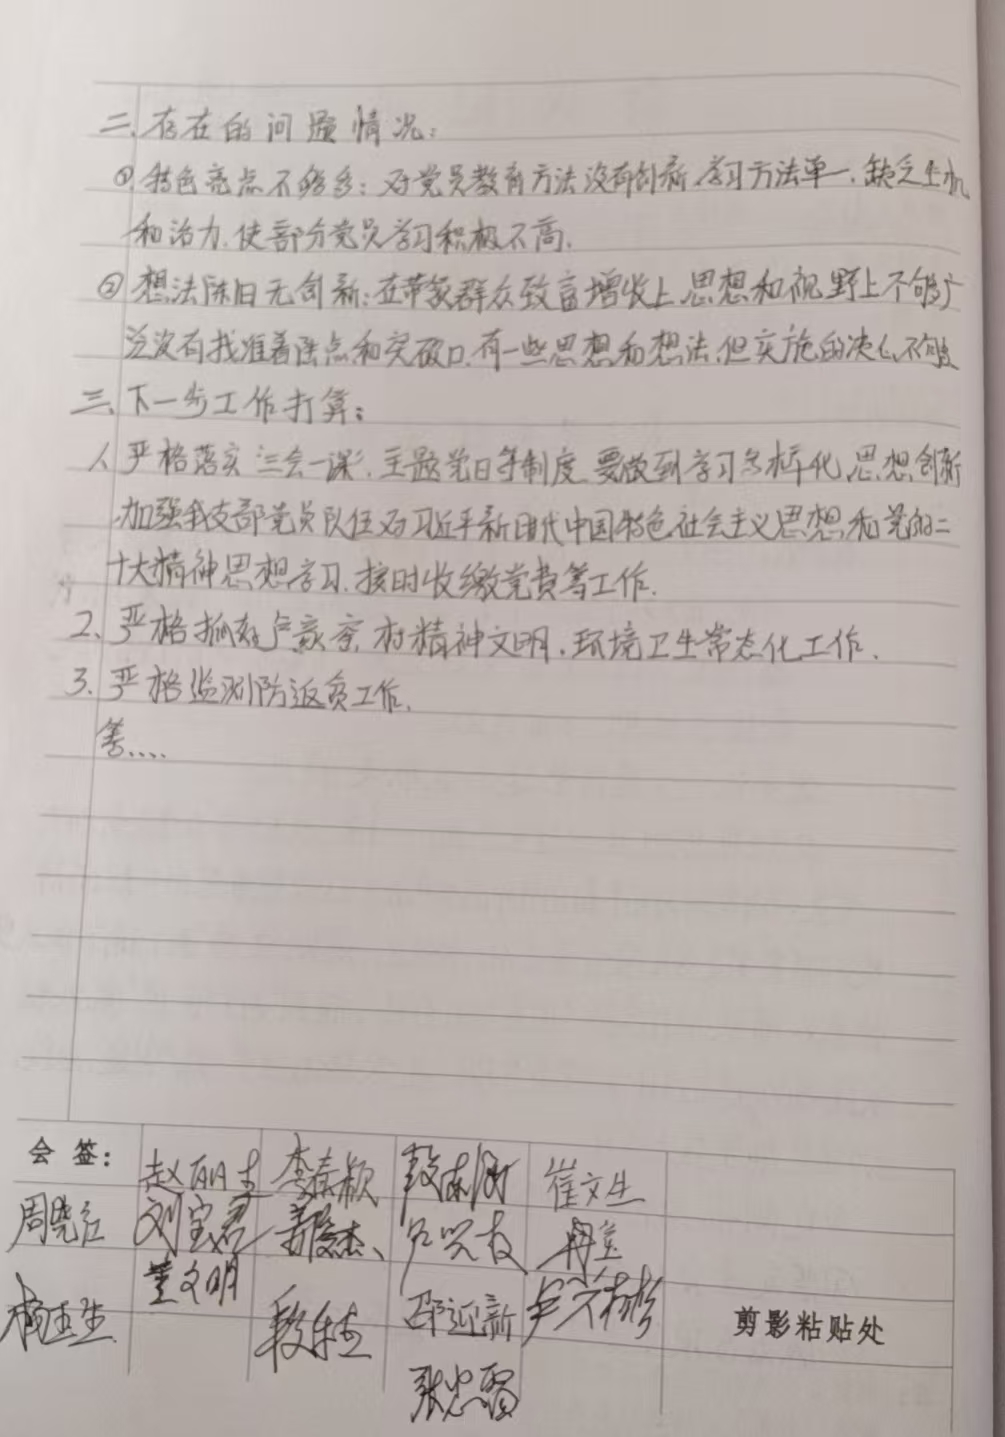 二、存在的问题情况：
①特色亮点不够多：对党员教育方法没有创新，学习方法单一，缺乏生机
和活力，使部分党员学习积极不高，
②想法陈旧无创新：在带领群众致富增收上，思想和视野上不够广
泛没有找准着落点和突破口，有一些思想和想法，但实施的决心不够
三、下一步工作打算：
1、严格落实三会一课，主题党日等制度，要做到学习多样化，思想创新
加强我支部党员队伍对习近平新时代中国特色社会主义思想和党的二
十大精神思想学习，按时收缴党费等工作.
2、严格抓好户 村精神文明，环境卫生常态化工作.
3、严格监测防返贫工作.
等....
会签： 赵 李春颖 段 崔文生
周晓红 刘宝君 杰 冉
董文明
生 段 邵迎新
张忠
剪影粘贴处